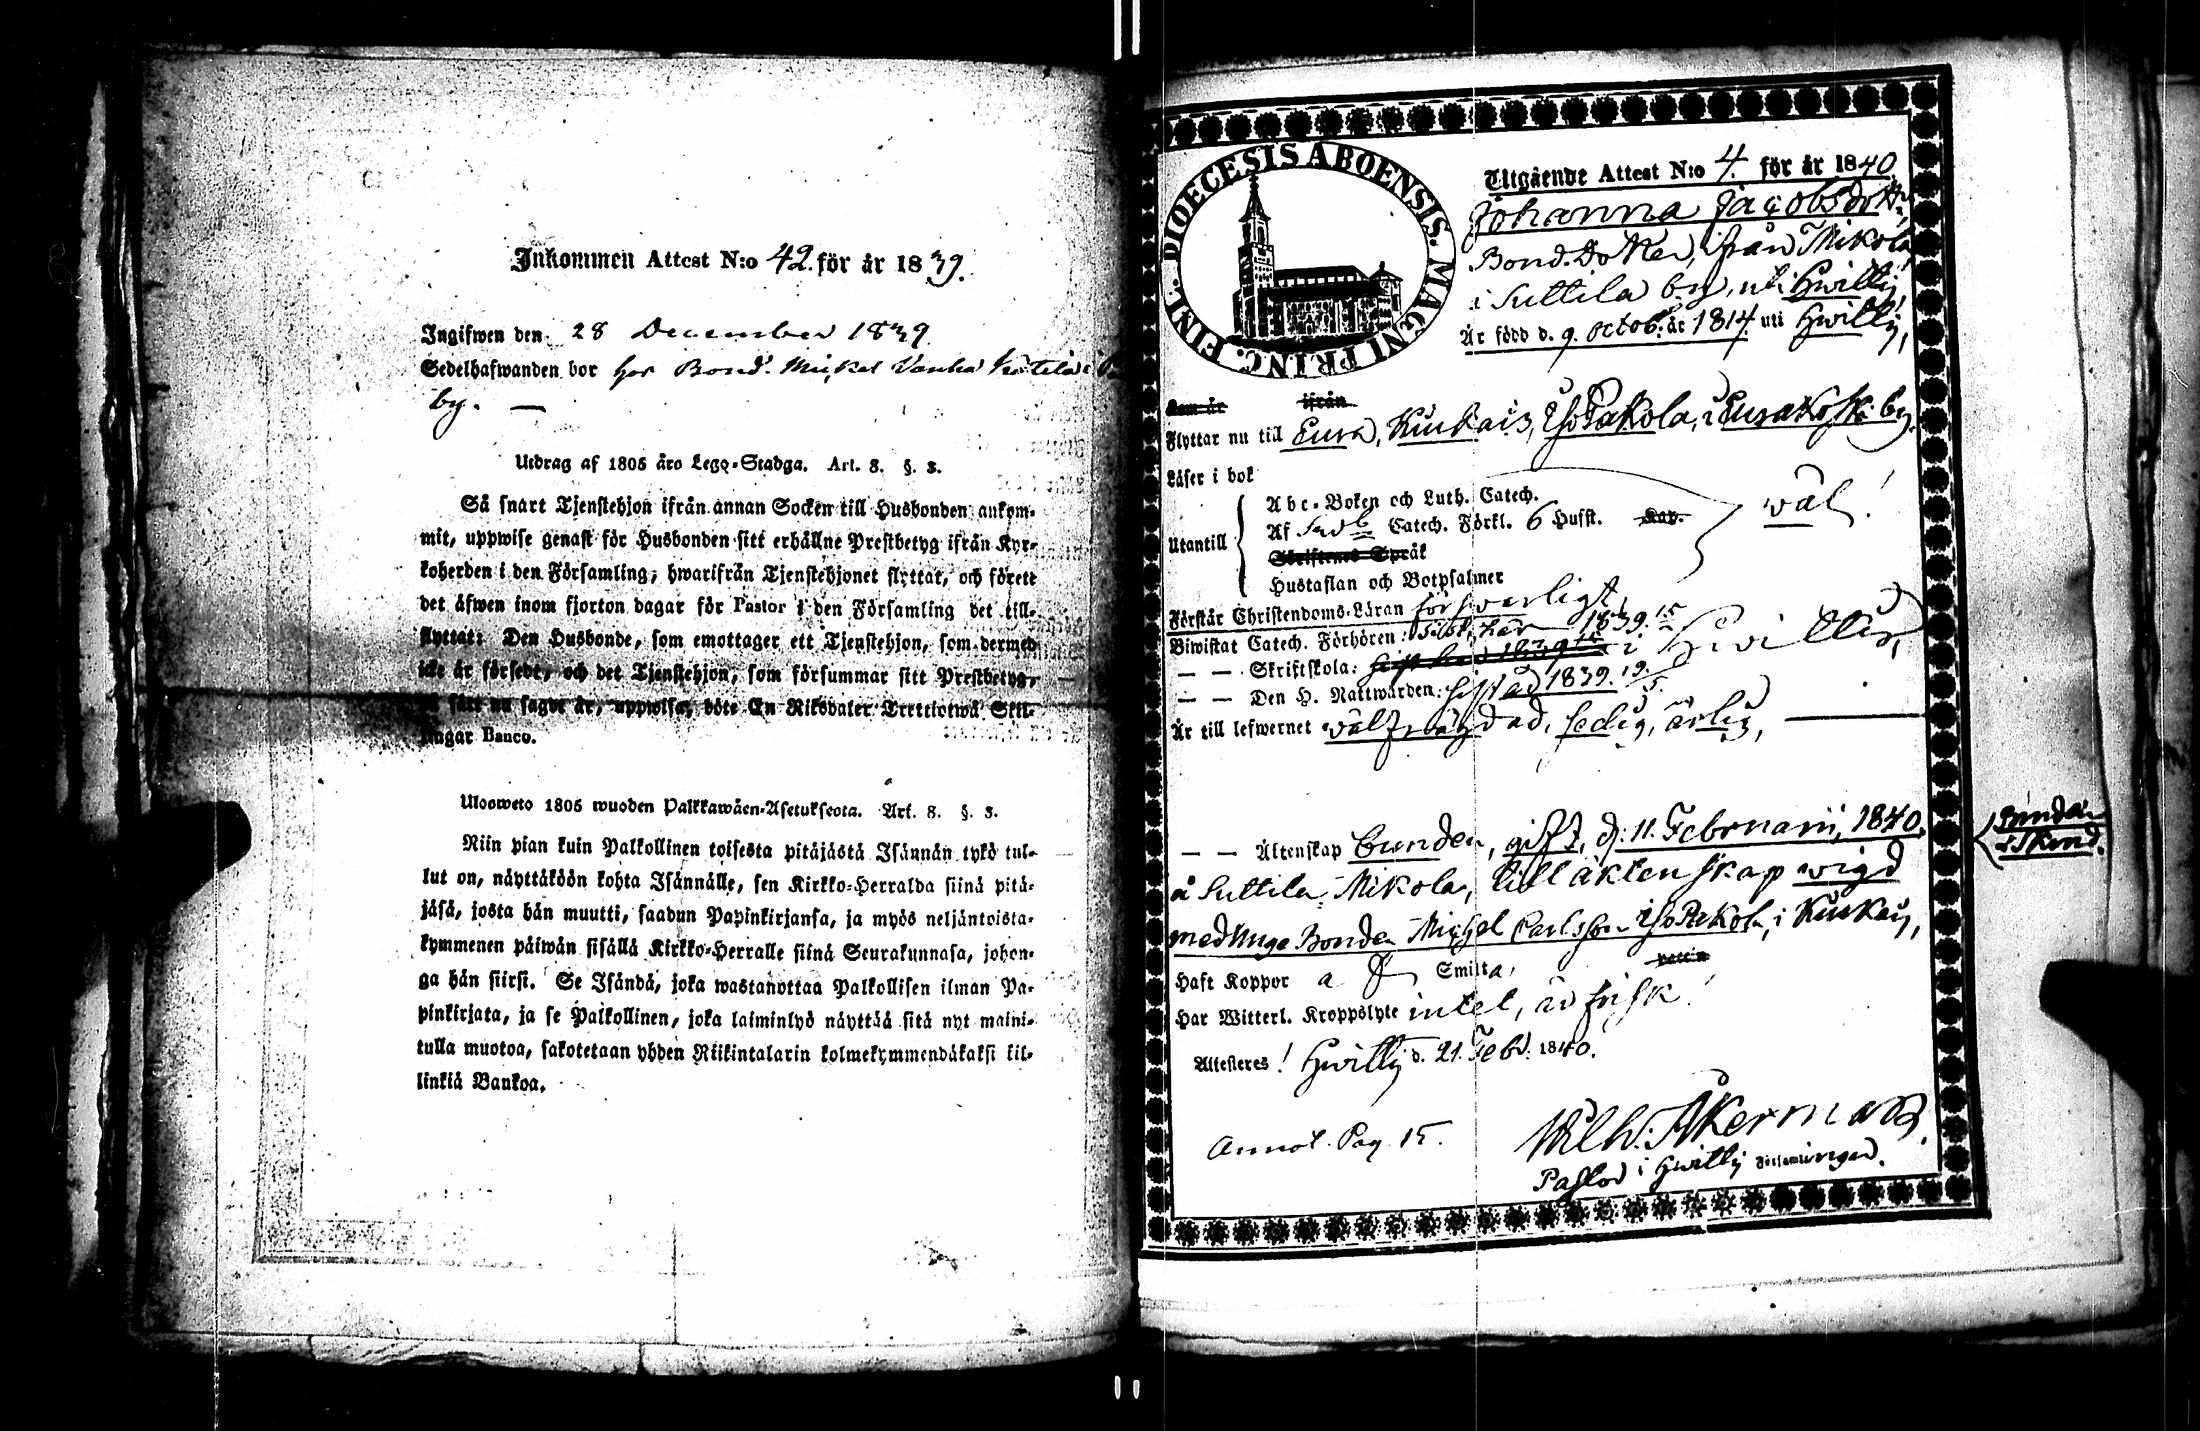 Inkommen Attest N:o 42. för år 1839.
Ingifwen den 28 December 1839
Sedelhafwanden bor hos Bond. Mickel Vanha
by. —
Utdrag af 1805 års Lego-Stadga. Art. 8. §. 3.
Så snart Tjenstehjon ifrån annan Socken till Husbonden ankom-
mit, uppwise genast för Husbonden sitt erhållne Prestbetyg ifrån Kyr-
koherden i den Församling, hwarifrån Tjenstehjonet flyttat, och förete
det äfwen inom fjorton dagar för Pastor i den Församling det till-
flyttat: Den Husbonde, som emottager ett Tjenstehjon, som dermed
icke är försedt, och det Tjenstehjon, som försummar sitt Prestbetyg,
sätt nu sagdt är, uppwisa, böte En Riksdaler Trettiotwå Skil-
lingar Banco.
Ulosweto 1805 wuoden Palkkawäen-Asetuksesta. Art. 8. §. 3.
Niin pian kuin Palkollinen toisesta pitäjästä Isännän tykö tul-
lut on, näyttäköön kohta Isännälle, sen Kirkko-Herralda siinä pitä-
jäsä, josta hän muutti, saadun Papinkirjansa, ja myös neljäntoista-
kymmenen päiwän sisällä Kirkko-Herralle siinä Seurakunnasa, johon-
ga hän siirsi. Se Isändä, joka wastanottaa Palkollisen ilman Pa-
pinkirjata, ja se Palkollinen, joka laiminlyö näyttää sitä nyt maini-
tulla muotoa, sakotetaan yhden Riikintalarin kolmekymmendäkaksi kil-
linkiä Bankoa.
DIOECESIS ABOENSIS. MAGNI PRINC. FINL.
Utgående Attest N:o 4. för år 1840.
Johanna Jacobsdotter,
Bond. Dotter, ifrån Mikola
i Suttila by, uti Hwittis,
Är född d. 9. Octob. år 1814. uti Hwittis,
Som är ifrån
Flyttar nu till Eura, Kiukais, Iso Pakola, i Eurakoski by.
Läser i bok
Utantill
Abc-Boken och Luth. Catech.
Af Svedb. Catech. Förkl. 6 Hufst. Kap. wäl!
Skriftens Språk
Hustaflan och Botpsalmer
Förstår Christendoms-Läran försvarligt,
Biwistat Catech. Förhören: sist, här 1839. 15
— — Skriftskola: i Hwittis,
— — Den H. Nattwarden: sistad 1839. 19/5.
Är till lefwernet wälfrägdad, sedig, ärlig, —
— — Äktenskap bunden, gift, d. 11. Februarii, 1840.
å Suttila Mikola, till äktenskap wigd
med Unge Bonden Michel Carlsson Iso Pakola, i Kiukais,
Haft Koppor a Smitta,
Har Witterl. Kroppslyte intet, är frisk!
Attesteres! Hwittis d. 21. Febr. 1840.
Annot. Pag. 15.
Wilh. Åkerman
Pastor i Hwittis Församlingar.